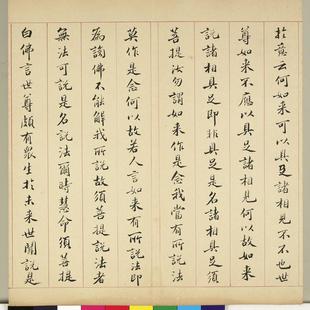 於意云何如來可以具足諸相見不不也世
尊如來不應以具足諸相見何以故如來
說諸相具足即非具足是名諸相具足須
菩提汝勿謂如來作是念我當有所說法
莫作是念何以故若人言如來有所說法即
為謗佛不能解我所說故須菩提說法者
無法可說是名說法爾時慧命須菩提
白佛言世尊頗有眾生於未來世聞說是